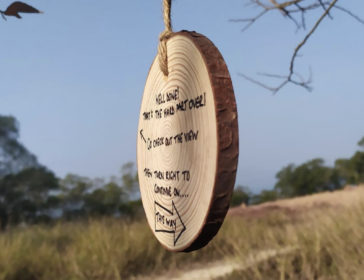 WELL DONE!
THAT'S THE HARD PART OVER!
GO CHECK OUT THE VIEW
THEN TURN RIGHT TO
CONTINUE ON....
THIS WAY